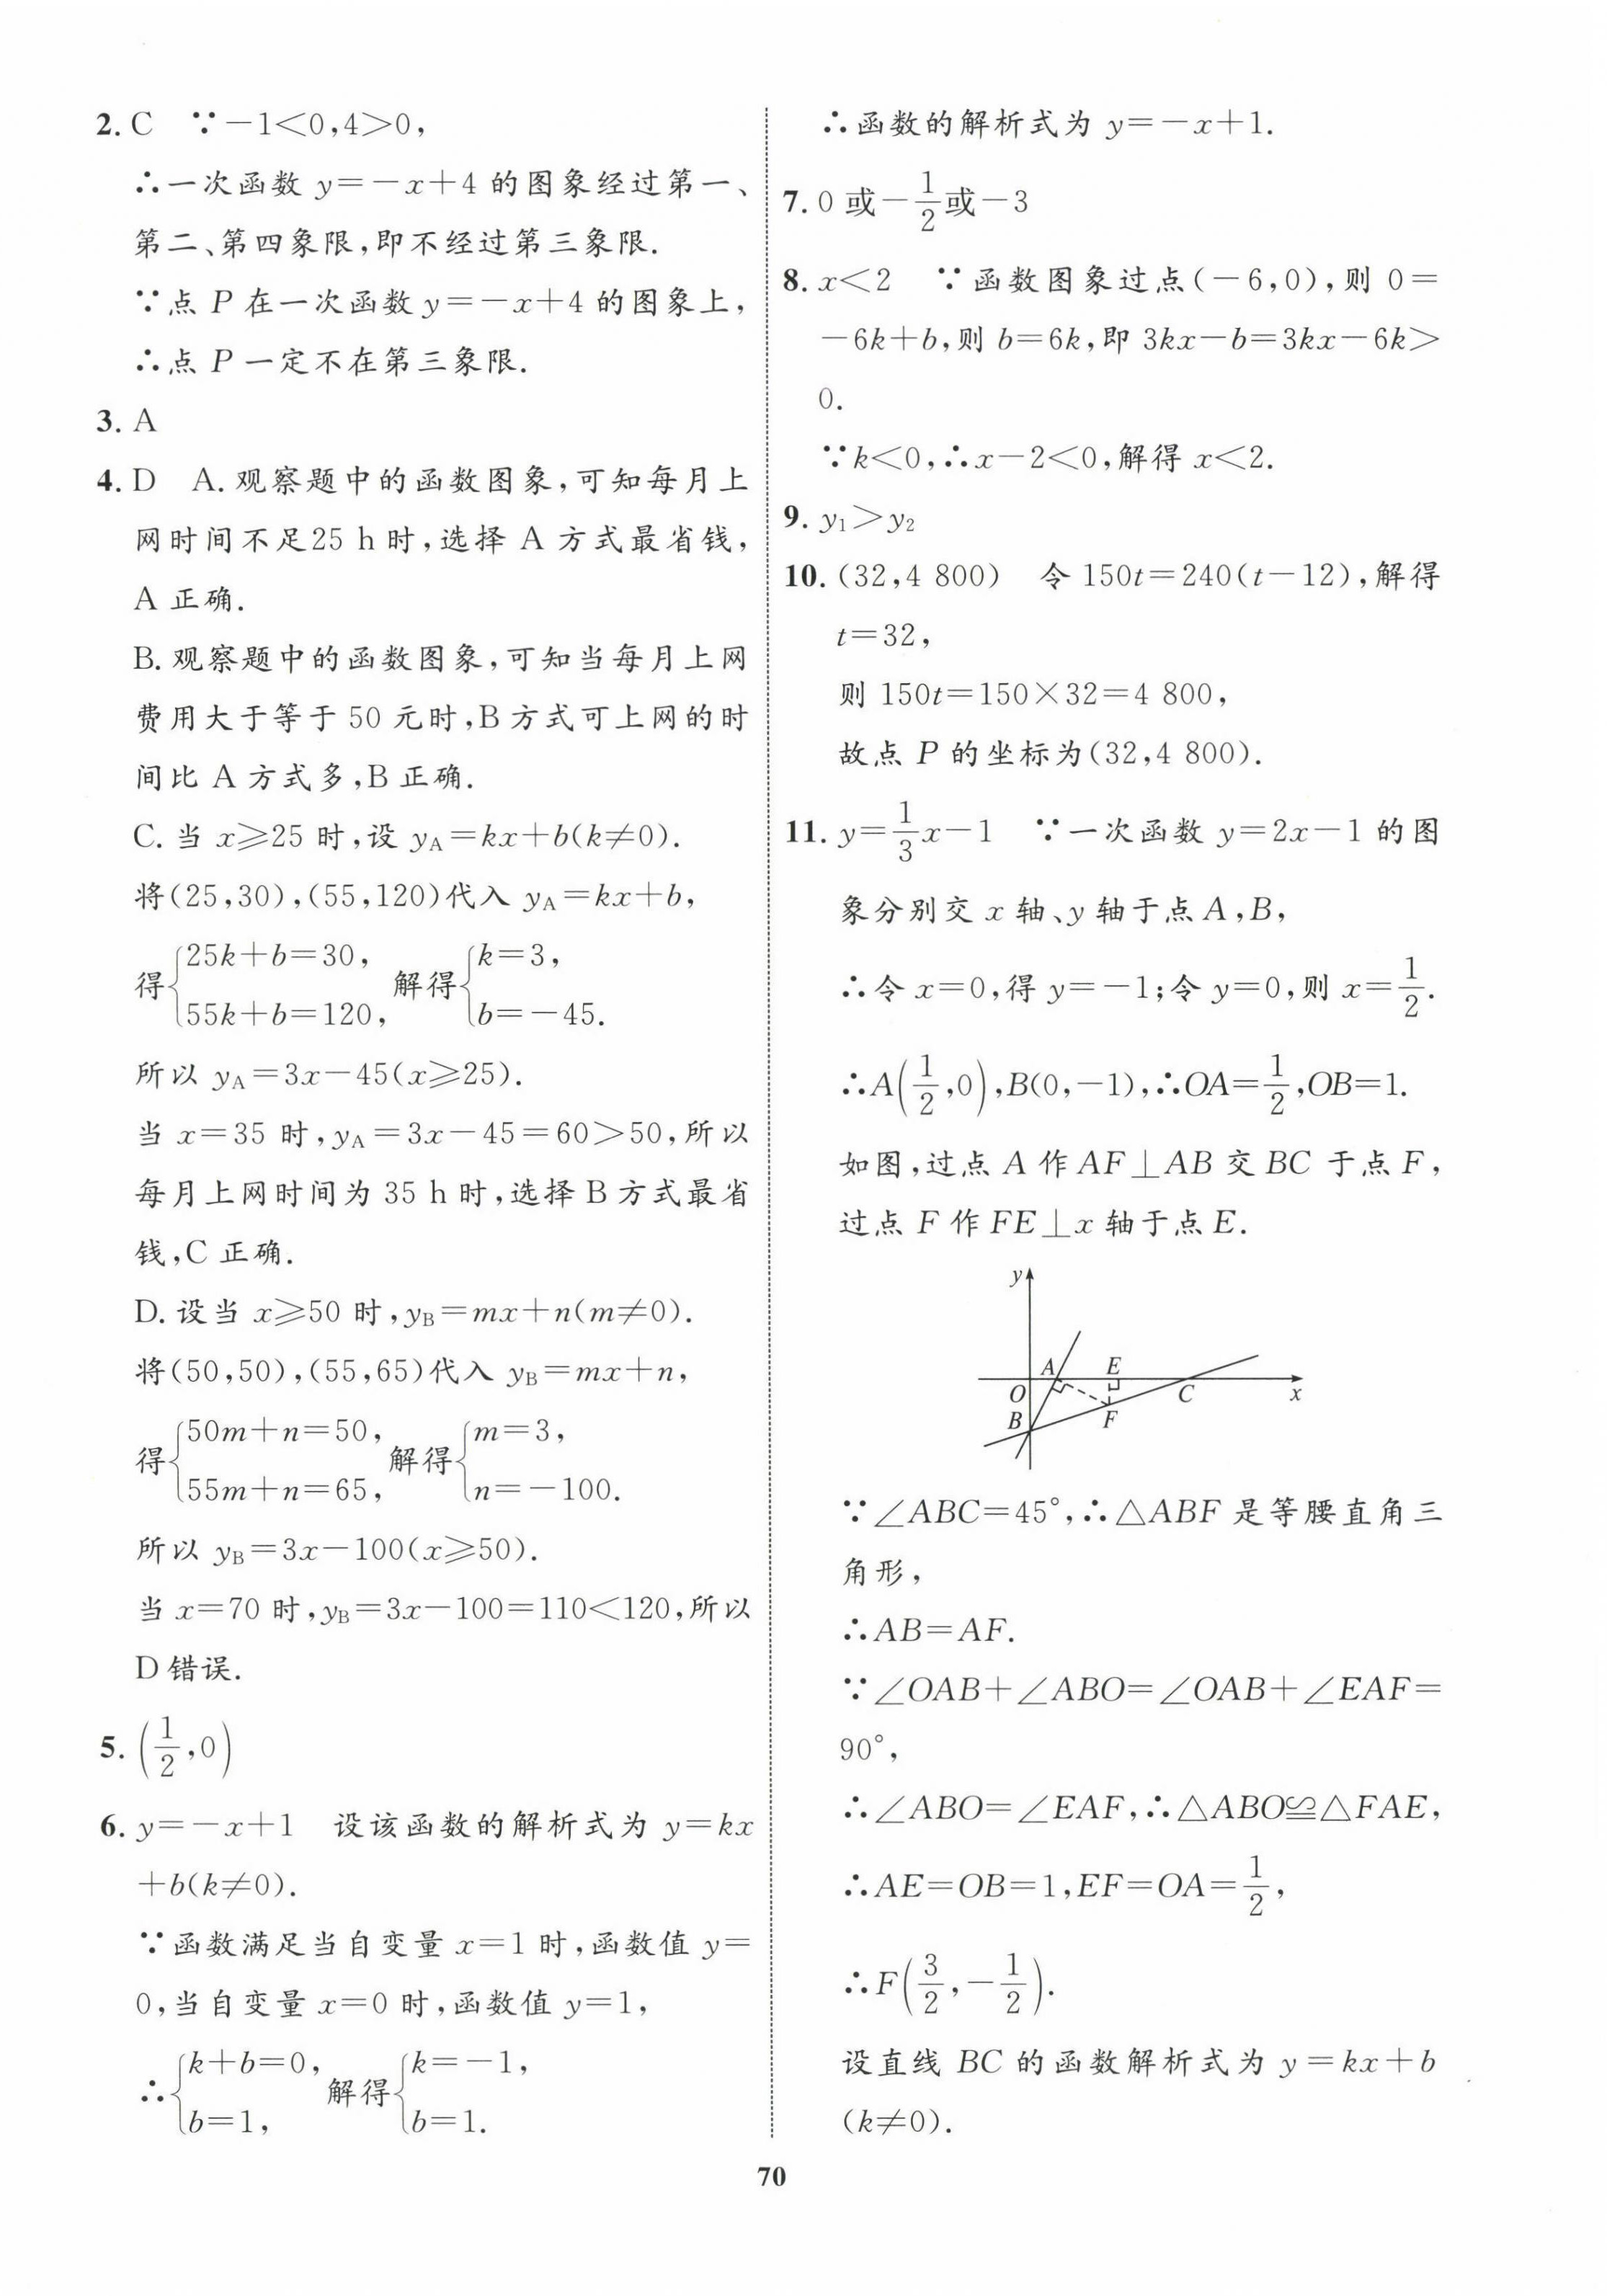 2. C ∵－1＜0,4＞0,
∴一次函数 y＝－x＋4 的图象经过第一、
第二、第四象限,即不经过第三象限.
∵点 P 在一次函数 y＝－x＋4 的图象上,
∴点 P 一定不在第三象限.
3. A
4. D A. 观察题中的函数图象,可知每月上
网时间不足25 h 时,选择 A 方式最省钱,
A 正确.
B. 观察题中的函数图象,可知当每月上网
费用大于等于 50 元时,B 方式可上网的时
间比 A 方式多,B 正确.
C. 当 x⩾25 时,设 y_A＝kx＋b(k≠0).
将(25,30),(55,120)代入 y_A＝kx＋b,
得{25k＋b＝30, 55k＋b＝120, 解得{k＝3, b＝－45.
所以 y_A＝3x－45(x⩾25).
当 x＝35 时,y_A＝3x－45＝60＞50,所以
每月上网时间为 35 h 时,选择 B 方式最省
钱,C 正确.
D. 设当 x⩾50 时,y_B＝mx＋n(m≠0).
将(50,50),(55,65)代入 y_B＝mx＋n,
得{50m＋n＝50, 55m＋n＝65, 解得{m＝3, n＝－100.
所以 y_B＝3x－100(x⩾50).
当 x＝70 时,y_B＝3x－100＝110＜120,所以
D 错误.
5. (1/2,0)
6. y＝－x＋1 设该函数的解析式为 y＝kx
＋b(k≠0).
∵函数满足当自变量 x＝1 时,函数值 y＝
0,当自变量 x＝0 时,函数值 y＝1,
∴{k＋b＝0, b＝1, 解得{k＝－1, b＝1.
∴函数的解析式为 y＝－x＋1.
7. 0 或－1/2或－3
8. x＜2 ∵函数图象过点(－6,0),则 0＝
－6k＋b,则 b＝6k,即 3kx－b＝3kx－6k＞
0.
∵k＜0,∴x－2＜0,解得 x＜2.
9. y₁＞y₂
10. (32,4 800) 令 150t＝240(t－12),解得
t＝32,
则 150t＝150×32＝4 800,
故点 P 的坐标为(32,4 800).
11. y＝1/3x－1 ∵一次函数 y＝2x－1 的图
象分别交 x 轴、y 轴于点 A,B,
∴令 x＝0,得 y＝－1;令 y＝0,则 x＝1/2.
∴A(1/2,0),B(0,－1),∴OA＝1/2,OB＝1.
如图,过点 A 作 AF⊥AB 交 BC 于点 F,
过点 F 作 FE⊥x 轴于点 E.
y
A E
O C x
B F
∵∠ABC＝45°,∴△ABF 是等腰直角三
角形,
∴AB＝AF.
∵∠OAB＋∠ABO＝∠OAB＋∠EAF＝
90°,
∴∠ABO＝∠EAF,∴△ABO≌△FAE,
∴AE＝OB＝1,EF＝OA＝1/2,
∴F(3/2,－1/2).
设直线 BC 的函数解析式为 y＝kx＋b
(k≠0).
70